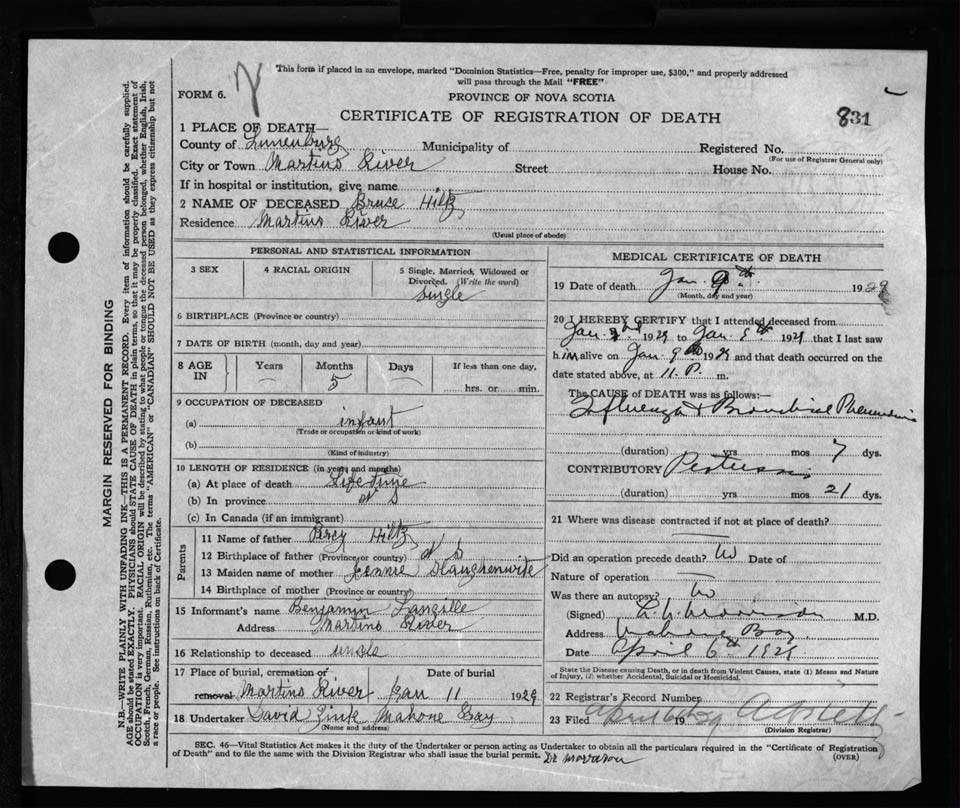 This form if placed in an envelope, marked "Dominion Statistics—Free, penalty for improper use, $300," and properly addressed
will pass through the Mail "FREE"
FORM 6.
PROVINCE OF NOVA SCOTIA
CERTIFICATE OF REGISTRATION OF DEATH
831
1 PLACE OF DEATH—
County of Lunenburg Municipality of Registered No.
(For use of Registrar General only)
City or Town Martins River Street House No.
If in hospital or institution, give name
2 NAME OF DECEASED Bruce Hiltz
Residence Martins River
(Usual place of abode)
PERSONAL AND STATISTICAL INFORMATION
3 SEX 4 RACIAL ORIGIN 5 Single, Married, Widowed or
Divorced. (Write the word)
single
6 BIRTHPLACE (Province or country)
7 DATE OF BIRTH (month, day and year)
8 AGE IN Years Months Days If less than one day,
5 hrs. or min.
9 OCCUPATION OF DECEASED
(a) infant
(Trade or occupation or kind of work)
(b)
(Kind of industry)
10 LENGTH OF RESIDENCE (in years and months)
(a) At place of death Lifetime
(b) In province N S
(c) In Canada (if an immigrant)
Parents
11 Name of father Percy Hiltz
12 Birthplace of father (Province or country) N S
13 Maiden name of mother Jennie Slaughenwite
14 Birthplace of mother (Province or country)
15 Informant's name Benjamin Langille
Address Martins River
16 Relationship to deceased uncle
17 Place of burial, cremation or Date of burial
removal Martins River Jan 11 1929
18 Undertaker David Zink Mahone Bay
(Name and address)
MEDICAL CERTIFICATE OF DEATH
19 Date of death Jan. 9th. 1929
(Month, day and year)
20 I HEREBY CERTIFY that I attended deceased from
Jan. 2nd 1929 to Jan 9th. 1929 that I last saw
him alive on Jan 9th 1929 and that death occurred on the
date stated above, at 11. P. m.
The CAUSE OF DEATH was as follows:—
Influenza & Bronchial Pneumonia
(duration) yrs mos 7 dys.
CONTRIBUTORY Pertussis
(duration) yrs mos 21 dys.
21 Where was disease contracted if not at place of death?
Did an operation precede death? No Date of
Nature of operation —
Was there an autopsy? No
(Signed) Morrison M.D.
Address Mahone Bay.
Date April 6th 1929
State the Disease causing Death, or in death from Violent Causes, state (1) Means and Nature
of Injury, (2) whether Accidental, Suicidal or Homicidal.
22 Registrar's Record Number
23 Filed April 6 1929
(Division Registrar)
SEC. 46—Vital Statistics Act makes it the duty of the Undertaker or person acting as Undertaker to obtain all the particulars required in the "Certificate of Registration
of Death" and to file the same with the Division Registrar who shall issue the burial permit. Dr Morrison (OVER)
MARGIN RESERVED FOR BINDING
N.B.—WRITE PLAINLY WITH UNFADING INK—THIS IS A PERMANENT RECORD. Every item of information should be carefully supplied.
AGE should be stated EXACTLY. PHYSICIANS should STATE CAUSE OF DEATH in plain terms, so that it may be properly classified. Exact statement of
OCCUPATION is very important. RACIAL ORIGIN will be described by stating to what people or tongue the deceased person belonged, whether English, Irish,
Scotch, French, German, Russian, Ruthenian, etc. The terms "AMERICAN" or "CANADIAN" SHOULD NOT BE USED as they express citizenship but not
a race or people. See instructions on back of Certificate.